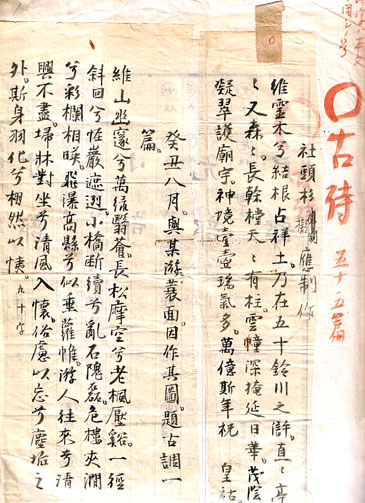 ○古詩 五十五篇
社頭杉 應制作
維靈木兮結根占祥土。乃在五十鈴川之滸。直〻亭
〻又森〻。長幹撑天〻有柱。雲幢深掩延日華。茂陰
凝翠護廟宇。神境瑞氣多。萬億斯年祝 皇祜
癸丑八月。與某游蓑面因作其圖題古調一
篇。
維山幽邃兮萬綠翳薈。長松摩空兮老楓壓谿。一徑
斜回兮怪巖遮迎。小橋斷續兮亂石隗磊。危樓夾澗
兮彩欄相映。飛瀑高縣兮似垂蘿帷。游人往來兮清
興不盡。掃牀對坐兮清風入懷。俗慮以忘兮塵垢之
外。斯身羽化兮栩然以。九十字